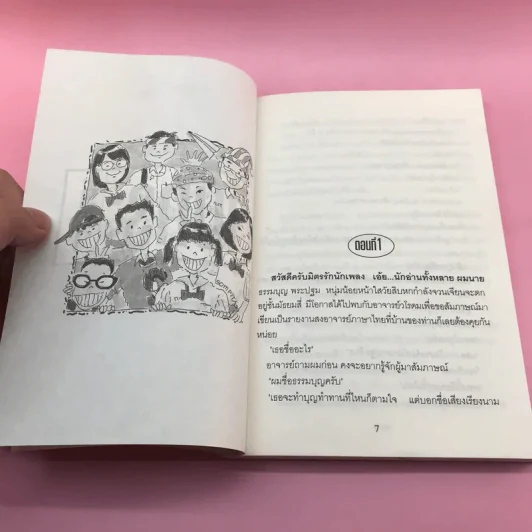 ตอนที่ 1
สวัสดีครับมิตรรักนักเพลง เอ๊ย...นักอ่านทั้งหลาย ผมนาย
ธรรมบุญ พระปฐม หนุ่มน้อยหน้าใสวัยสิบหกกำลังจวนเจียนจะตก
อยู่ชั้นมัธยมสี่ มีโอกาสได้ไปพบกับอาจารย์วไรคมเพื่อขอสัมภาษณ์มา
เขียนเป็นรายงานส่งอาจารย์ภาษาไทยที่บ้านของท่านก็เลยต้องคุยกัน
หน่อย
'เธอชื่ออะไร'
อาจารย์ถามผมก่อน คงจะอยากรู้จักผู้มาสัมภาษณ์
'ผมชื่อธรรมบุญครับ'
'เธอจะทำบุญทำทานที่ไหนก็ตามใจ แต่บอกชื่อเสียงเรียงนาม
7